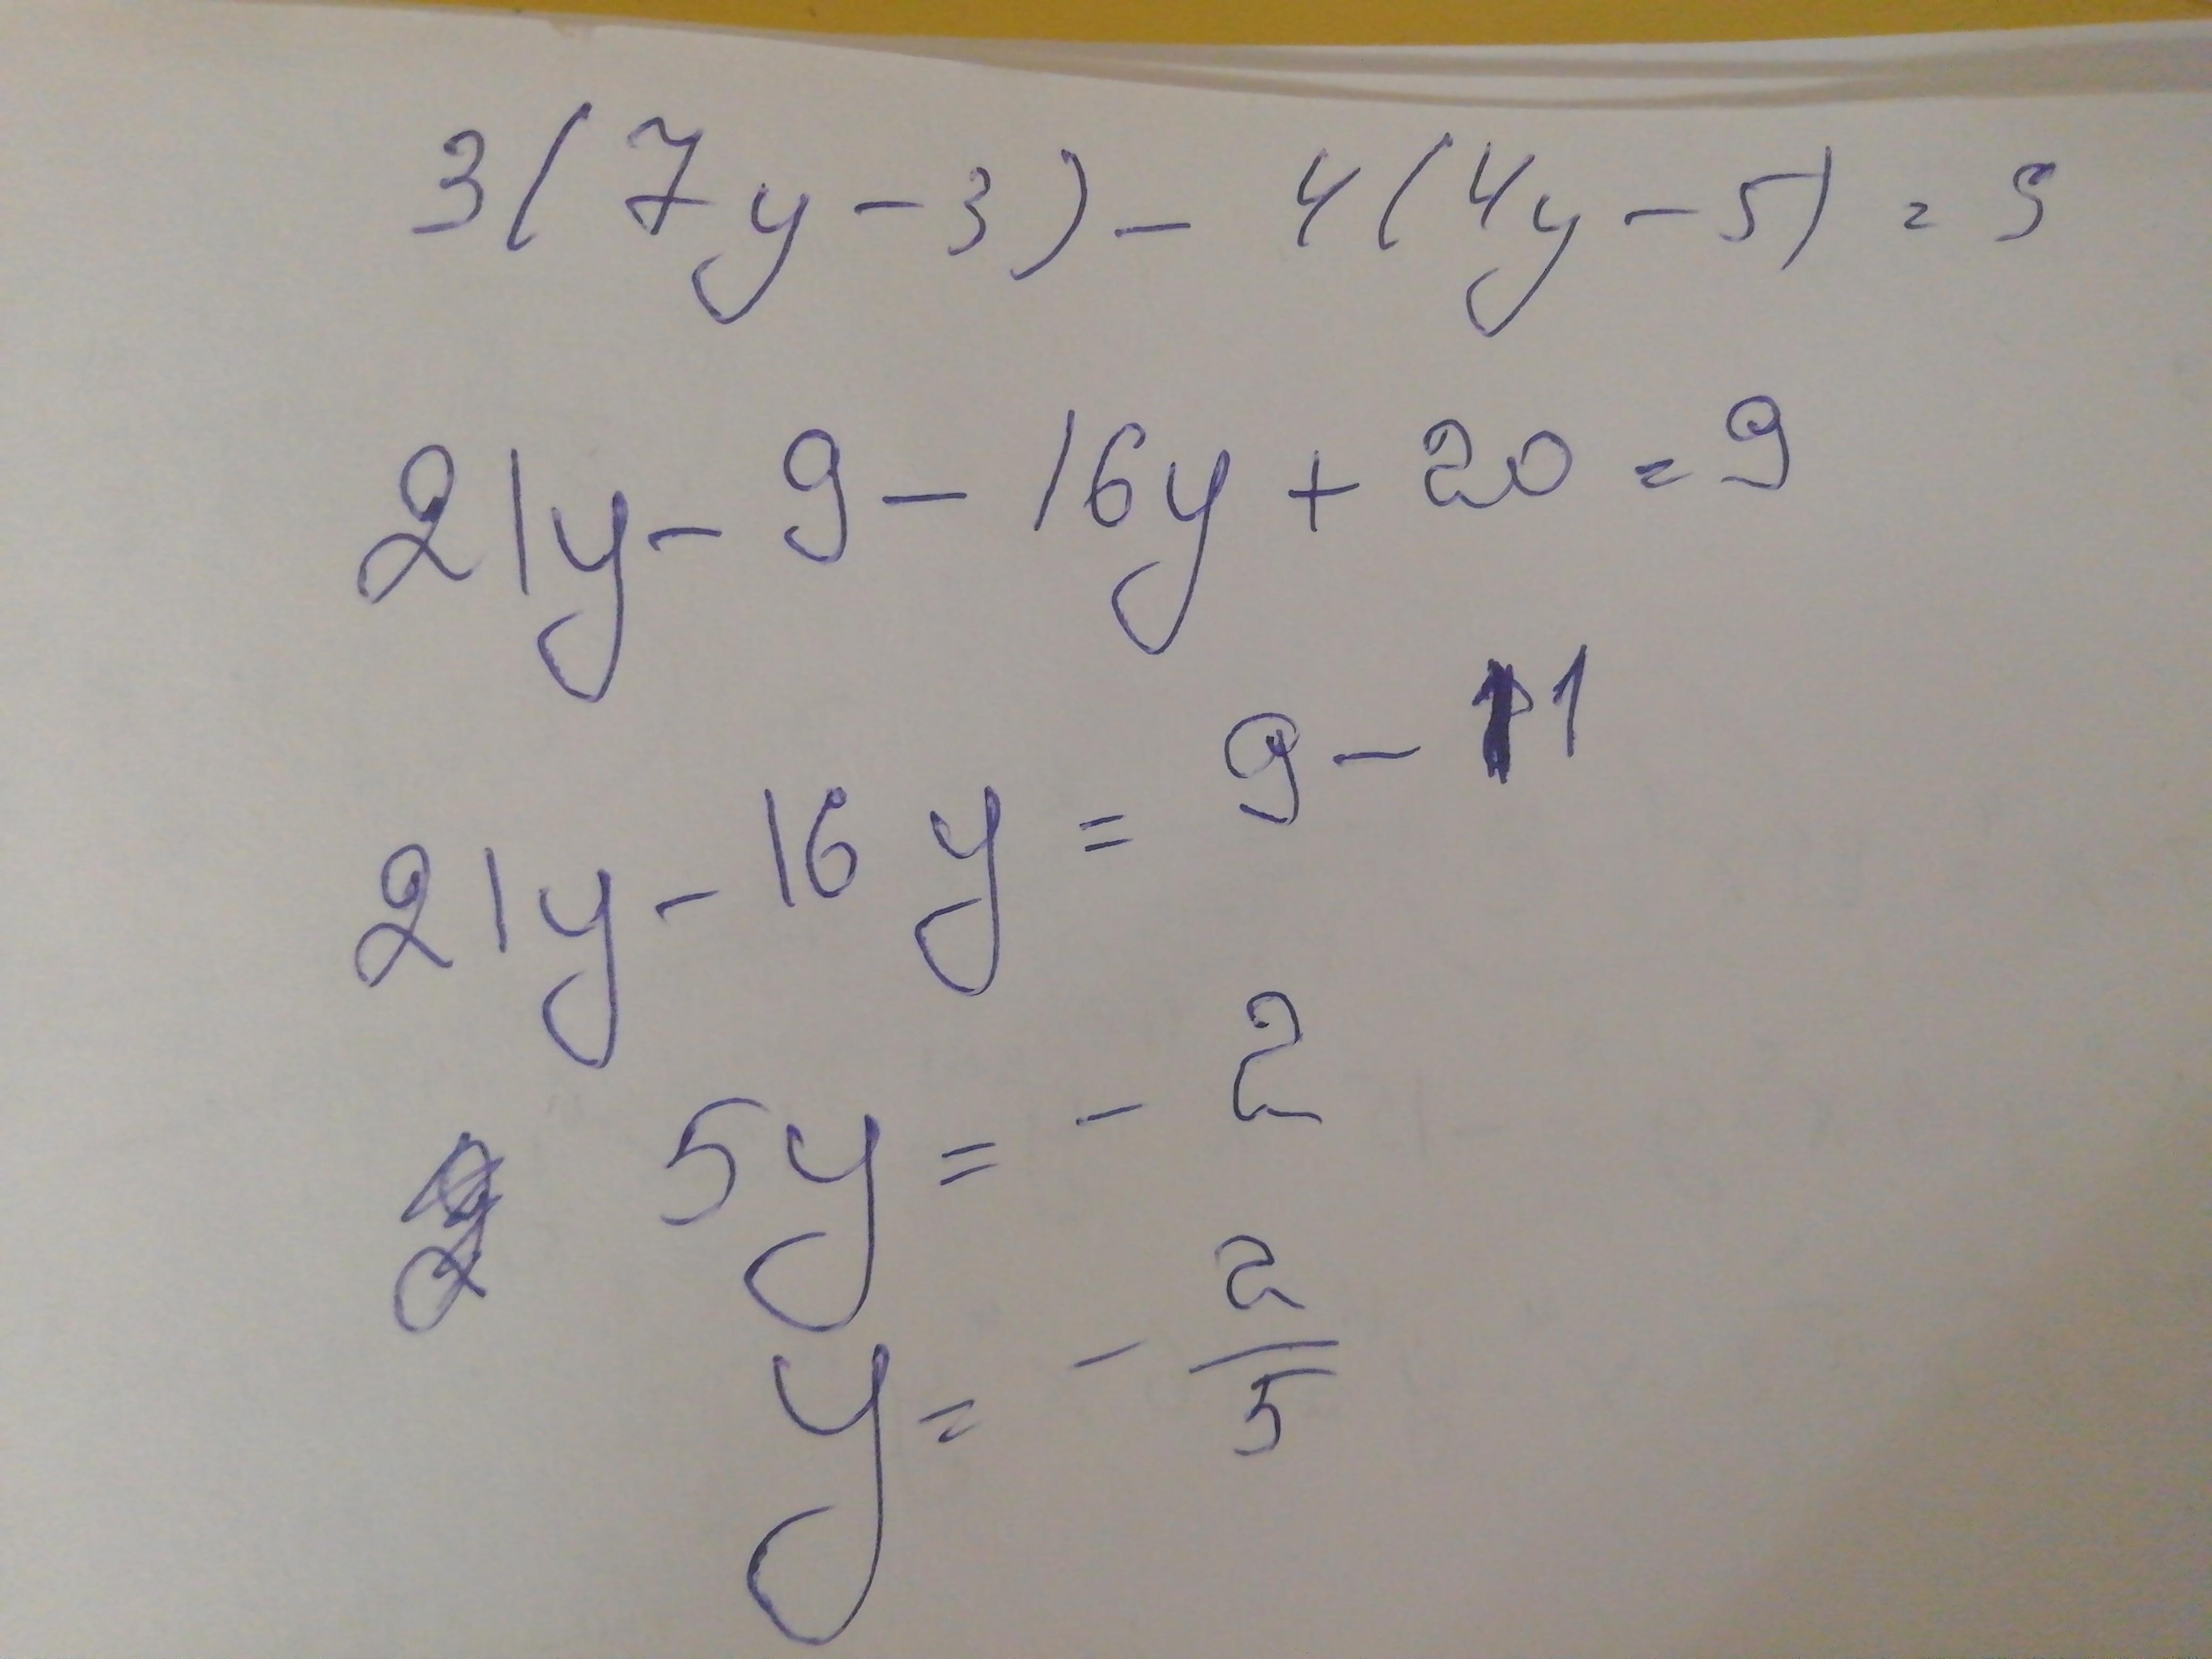 3(7y-3)-4(4y-5)=9
21y-9-16y+20=9
21y-16y=9-11
5y=-2
y=-2/5